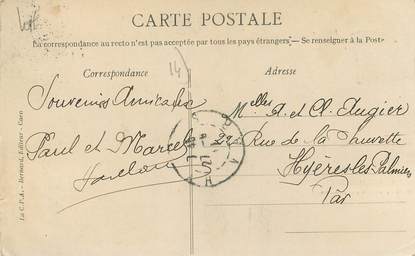 CARTE POSTALE
La correspondance au recto n'est pas acceptée par tous les pays étrangers. — Se renseigner à la Poste
Correspondance
Adresse
14
Souvenirs Amicales
Paul et Marcel
Melles A. et Cl. Augier
Rue de la Fauvette
Hyères-les-Palmiers
Var
La C.P.A. - Bernard, Editeur - Caen